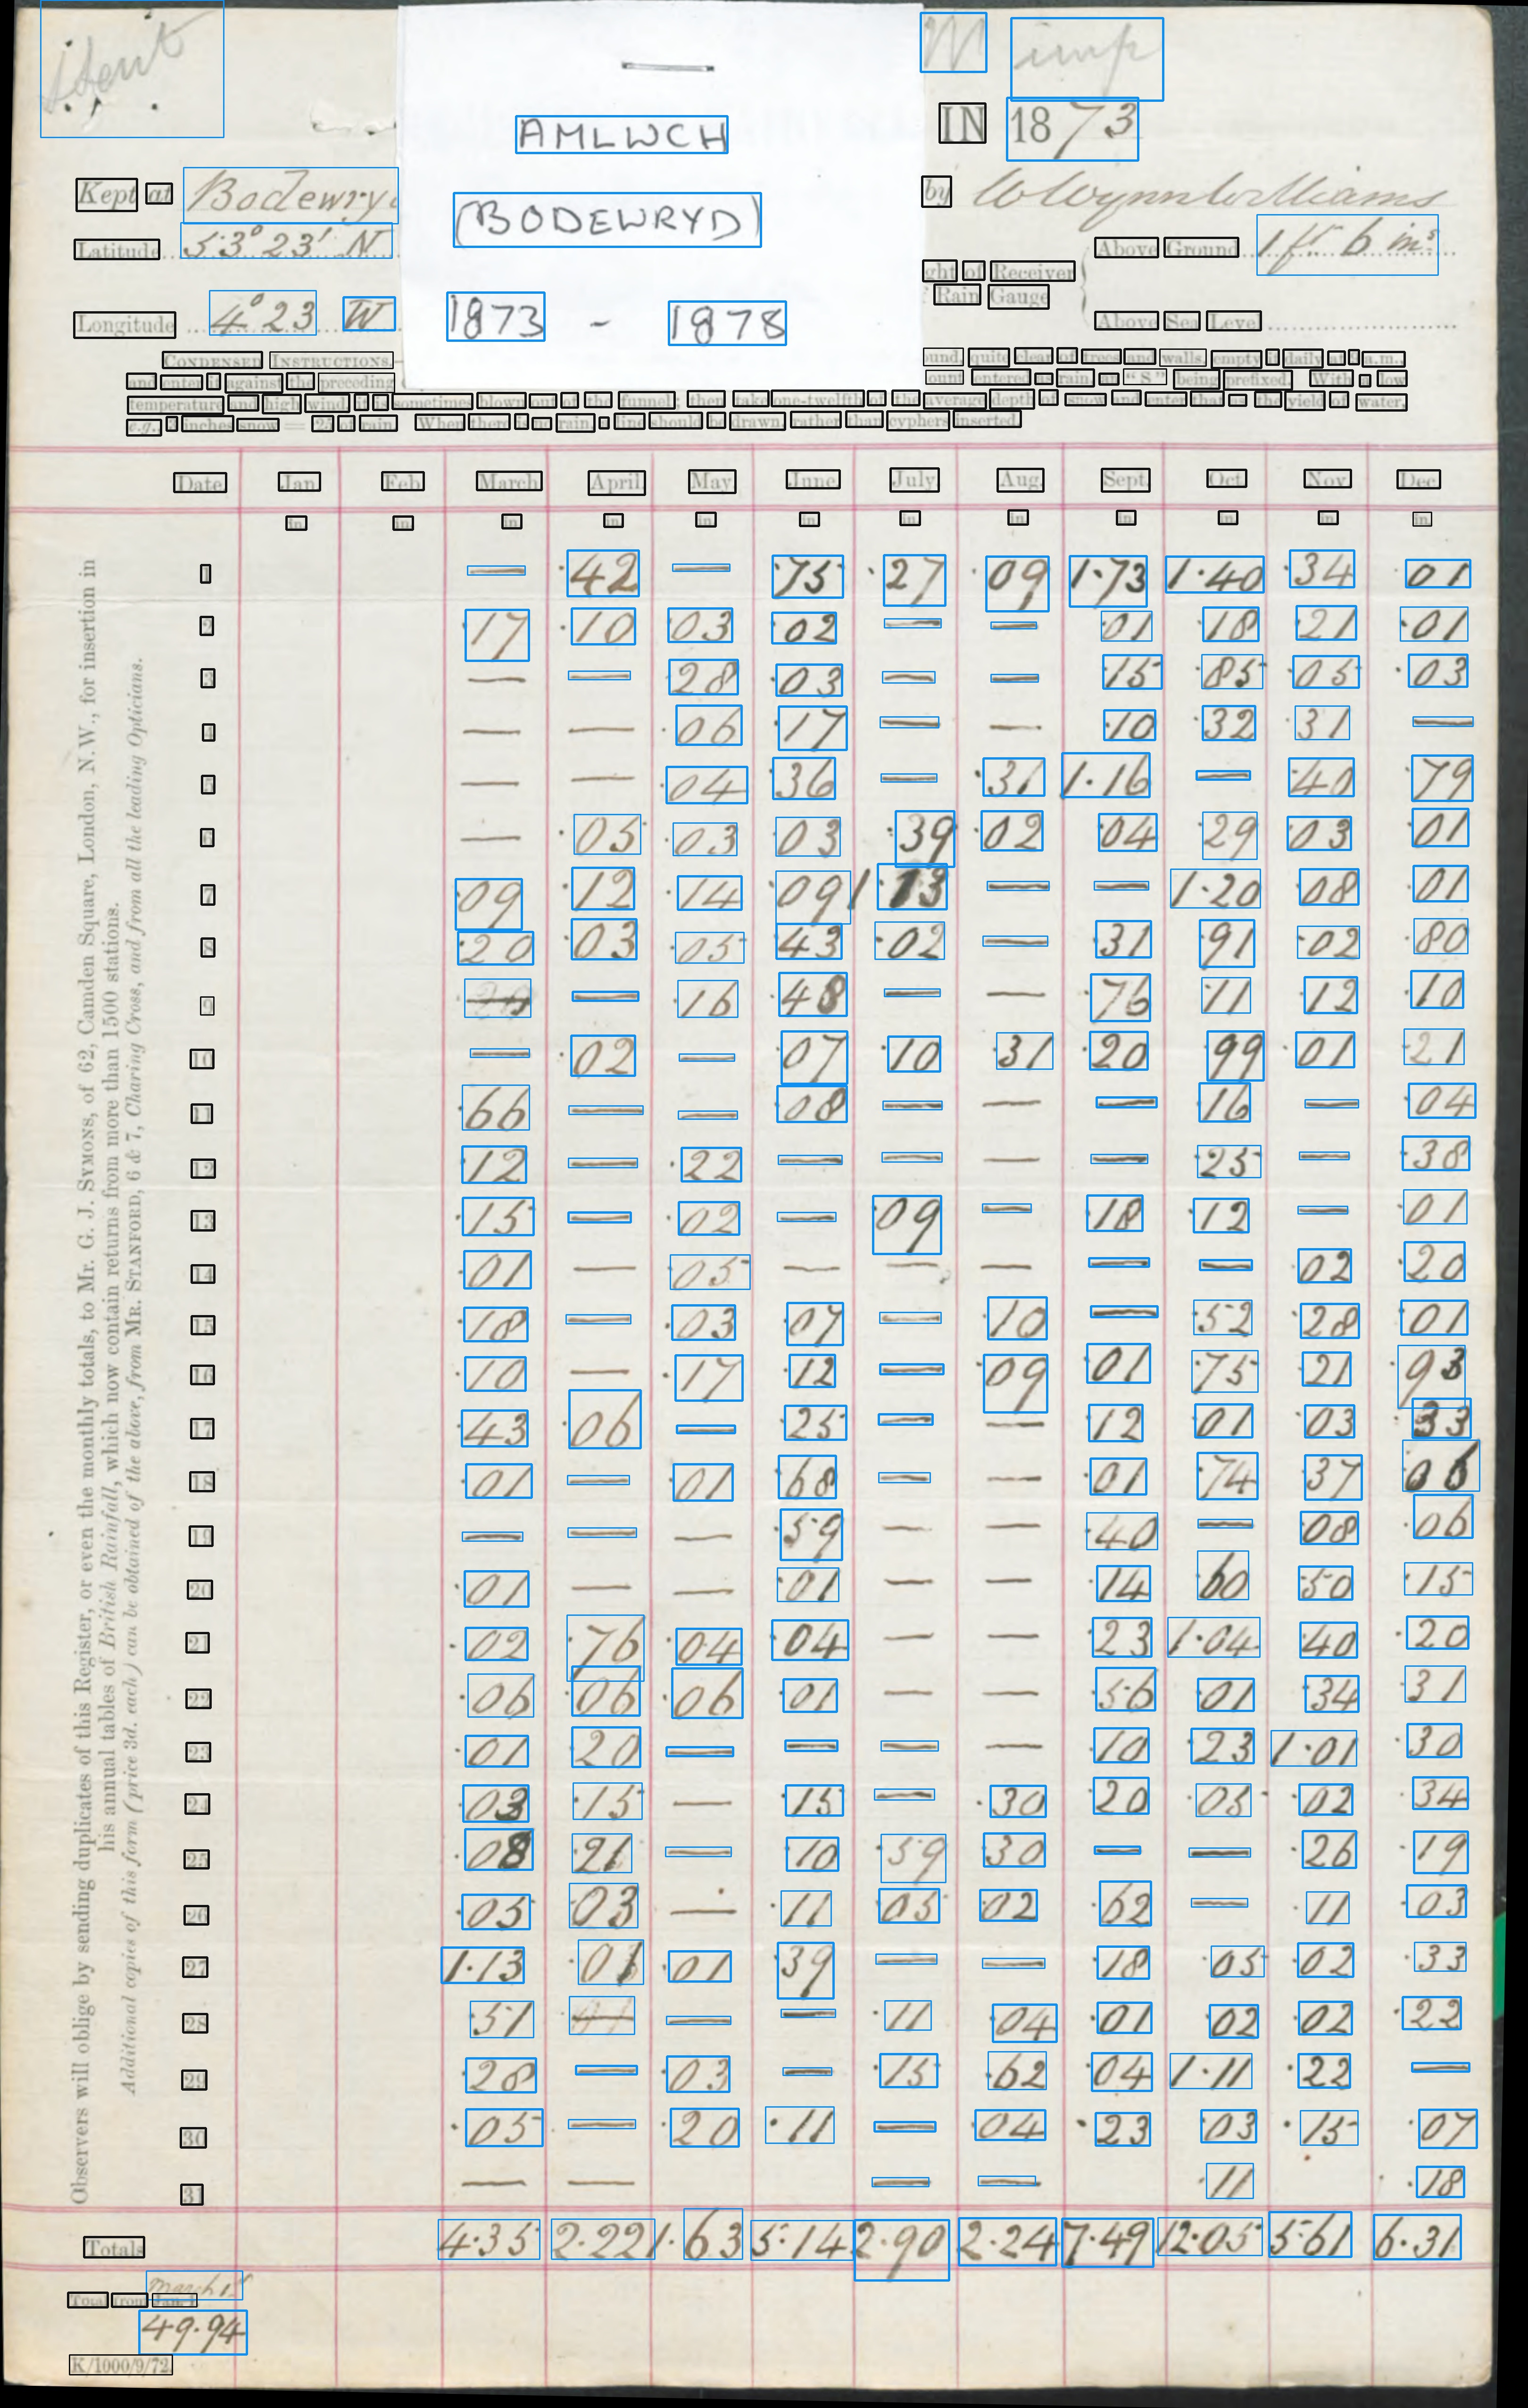 Stent
M imp
AMLWCH
IN 1873
Kept at Bodewry
(BODEWRYD)
by W Wynn Williams
Latitude 53° 23' N
Above Ground 1 ft 6 ins
ght of Receiver
Rain Gauge
Longitude 4° 23 W
1873 - 1878
Above Sea Level
CONDENSED INSTRUCTIONS—
ound, quite clear of trees and walls, empty it daily at 9 a.m.,
and enter it against the preceding
ount entered as rain, an "S" being prefixed. With a low
temperature and high wind, it is sometimes blown out of the funnel; then take one-twelfth of the average depth of snow and enter that as the yield of water,
e.g., 3 inches snow = ·25 of rain. When there is no rain, a line should be drawn, rather than cyphers inserted.
Date Jan. Feb. March April. May. June. July. Aug. Sept. Oct. Nov. Dec.
in in in in in in in in in in in in
1 — ·42 — ·75 ·27 ·09 1·73 1·40 ·34 ·01
2 ·17 ·10 ·03 ·02 — — ·01 ·18 ·21 ·01
3 — — ·28 ·03 — — ·15 ·85 ·05 ·03
4 — — ·06 ·17 — — ·10 ·32 ·31 —
5 — — ·04 ·36 — ·31 1·16 — ·40 ·79
6 — ·05 ·03 ·03 ·39 ·02 ·04 ·29 ·03 ·01
7 ·09 ·12 ·14 ·09 1·13 — — 1·20 ·08 ·01
8 ·20 ·03 ·05 ·43 ·02 — ·31 ·91 ·02 ·80
9 — — ·16 ·48 — — ·76 ·11 ·12 ·10
10 — ·02 — ·07 ·10 ·31 ·20 ·99 ·01 ·21
11 ·66 — — ·08 — — — ·16 — ·04
12 ·12 — ·22 — — — — ·25 — ·38
13 ·15 — ·02 — ·09 — ·18 ·12 — ·01
14 ·01 — ·05 — — — — — ·02 ·20
15 ·18 — ·03 ·07 — ·10 — ·52 ·28 ·01
16 ·10 — ·17 ·12 — ·09 ·01 ·75 ·21 ·93
17 ·43 ·06 — ·25 — — ·12 ·01 ·03 ·33
18 ·01 — ·01 ·68 — — ·01 ·74 ·37 ·06
19 — — — ·59 — — ·40 — ·08 ·06
20 ·01 — — ·01 — — ·14 ·60 ·50 ·15
21 ·02 ·76 ·04 ·04 — — ·23 1·04 ·40 ·20
22 ·06 ·06 ·06 ·01 — — ·56 ·01 ·34 ·31
23 ·01 ·20 — — — — ·10 ·23 1·01 ·30
24 ·03 ·15 — ·15 — ·30 ·20 ·05 ·02 ·34
25 ·08 ·21 — ·10 ·59 ·30 — — ·26 ·19
26 ·05 ·03 — ·11 ·05 ·02 ·62 — ·11 ·03
27 1·13 ·01 ·01 ·39 — — ·18 ·05 ·02 ·33
28 ·51 — — — ·11 ·04 ·01 ·02 ·02 ·22
29 ·28 — ·03 — ·15 ·62 ·04 1·11 ·22 —
30 ·05 — ·20 ·11 — ·04 ·23 ·03 ·15 ·07
31 — — — — ·11 ·18
Totals 4·35 2·22 1·63 5·14 2·90 2·24 7·49 12·05 5·61 6·31
March 1st
Total from Jan. 1
49·94
K/1000/9/72.
Observers will oblige by sending duplicates of this Register, or even the monthly totals, to Mr. G. J. SYMONS, of 62, Camden Square, London, N.W., for insertion in
his annual tables of British Rainfall, which now contain returns from more than 1500 stations.
Additional copies of this form (price 3d. each) can be obtained of the above, from MR. STANFORD, 6 & 7, Charing Cross, and from all the leading Opticians.